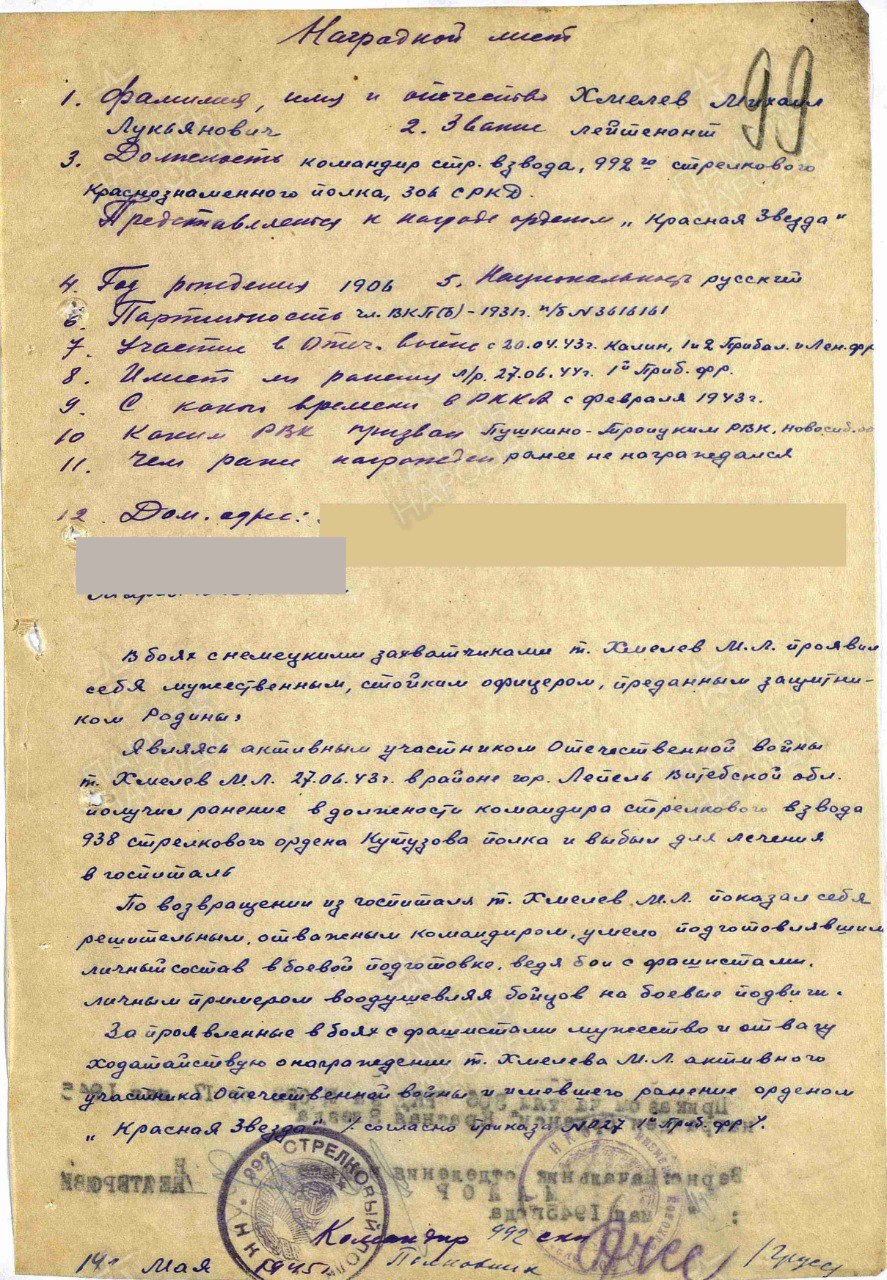 Наградной лист
99
1. Фамилия, имя и отчество Хмелев Михаил
Лукьянович 2. Звание лейтенант
3. Должность командир стр. взвода, 992го стрелкового
Краснознаменного полка, 306 СРКД.
Представляется к награде орденом „Красная Звезда"
4. Год рождения 1906 5. Национальность русский
6. Партийность чл. ВКП(б) - 1931г. п/б N3616161
7. Участие в Отеч. войне с 20.04.43г. Калин, 1 и 2 Прибал. и Лен. фр
8. Имеет ли ранения л/р. 27.06.44г. 1й Приб. фр.
9. С какого времени в РККА с февраля 1943г.
10 Каким РВК призван Пушкино-Троицким РВК, Новосиб. об
11. Чем ранее награжден ранее не награждался
12. Дом. адрес:
В боях с немецкими захватчиками т. Хмелев М.Л. проявил
себя мужественным, стойким офицером, преданным защитни-
ком Родины;
Являясь активным участником Отечественной войны
т. Хмелев М.Л. 27.06.43г. в районе гор. Лепель Витебской обл.
получил ранение в должности командира стрелкового взвода
938 стрелкового ордена Кутузова полка и выбыл для лечения
в госпиталь
По возвращении из госпиталя т. Хмелев М.Л. показал себя
решительным, отважным командиром, умело подготовлявшим
личный состав в боевой подготовке, ведя бои с фашистами.
личным примером воодушевляя бойцов на боевые подвиги.
За проявленные в боях с фашистами мужество и отвагу
ходатайствую о награждении т. Хмелева М.Л. активного
участника Отечественной войны и имевшего ранение орденом
„Красная Звезда" /согласно Приказа N027 1 Приб. фр/.
992 СТРЕЛКОВЫЙ ПОЛК
НКО
Командир 992 скп
14 " Мая 1945г. Полковник